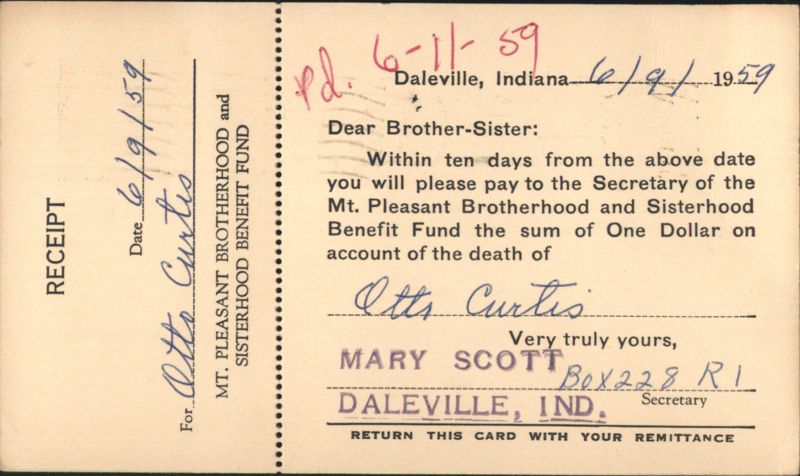 RECEIPT
Date 6/9/59
For Otto Curtis
MT. PLEASANT BROTHERHOOD and
SISTERHOOD BENEFIT FUND
Pd. 6-11-59
Daleville, Indiana 6/9/ 1959
Dear Brother-Sister:
Within ten days from the above date
you will please pay to the Secretary of the
Mt. Pleasant Brotherhood and Sisterhood
Benefit Fund the sum of One Dollar on
account of the death of
Otto Curtis
Very truly yours,
MARY SCOTT
Box 228 R 1
DALEVILLE, IND.
Secretary
RETURN THIS CARD WITH YOUR REMITTANCE